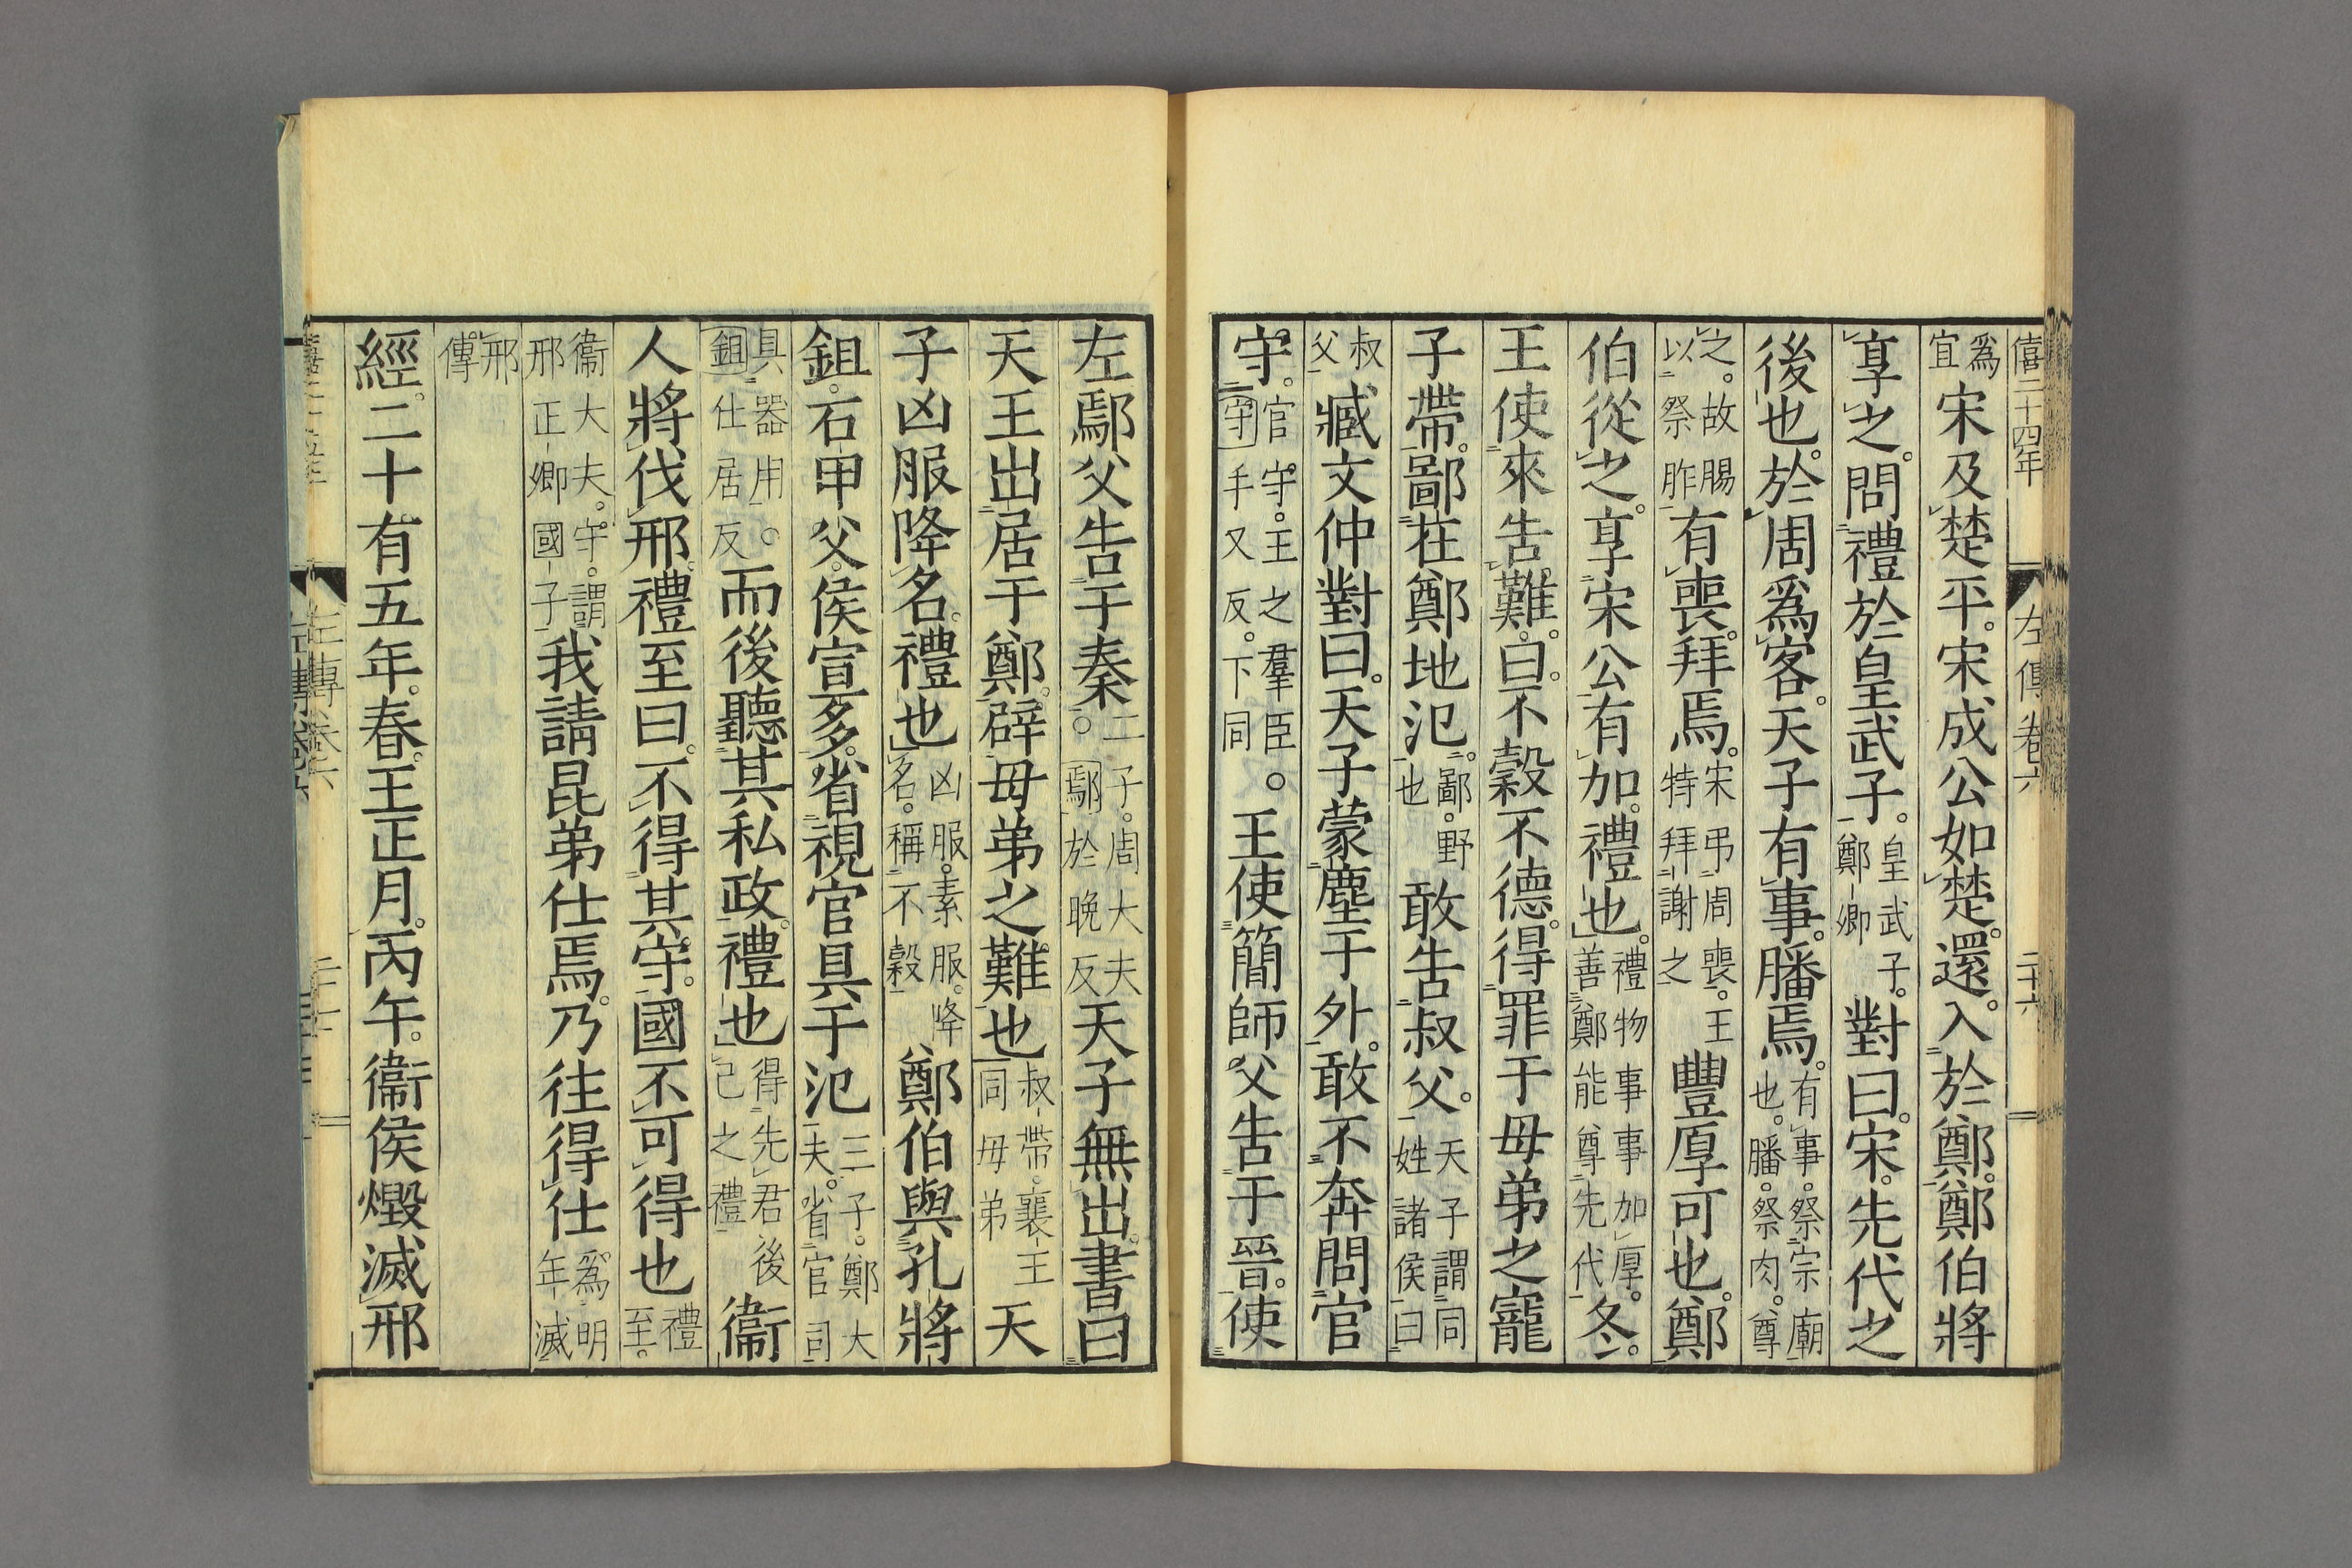 僖二十四年　左傳卷六　二十六
爲宜宋及楚平。宋成公如楚。還。入於鄭。鄭伯將
享之。問禮於皇武子。皇武子。鄭卿對曰。宋。先代之
後也。於周爲客。天子有事。膰焉。有事。祭宗廟也。膰。祭肉。尊
之。故賜以祭胙有喪。拜焉。宋弔周喪。王特拜謝之豐厚可也。鄭
伯從之。享宋公有加。禮也。禮物事事加厚。善鄭能尊先代冬。
王使來告難。曰。不穀不德。得罪于母弟之寵
子帶。鄙在鄭地氾。鄙。野也敢告叔父。天子謂同姓諸侯曰
叔父臧文仲對曰。天子蒙塵于外。敢不奔問官
守。官守。王之羣臣。守手又反。下同。王使簡師父告于晉。使
左鄢父告于秦。二子。周大夫鄢於晚反天子無出。書曰
天王出居于鄭。辟母弟之難也叔帶。襄王同母弟天
子凶服降名。禮也凶服。素服。降名。稱不穀鄭伯與孔將
鉏。石甲父。侯宣多。省視官具于氾三子。鄭大夫。省官司
具器用。鉏仕居反而後聽其私政。禮也得先君後己之禮衞
人將伐邢。禮至曰。不得其守。國不可得也禮至。
衞大夫。守。謂邢正卿國子我請昆弟仕焉。乃往得仕爲明年滅
邢傳
經。二十有五年。春。王正月。丙午。衞侯燬滅邢
左傳卷六